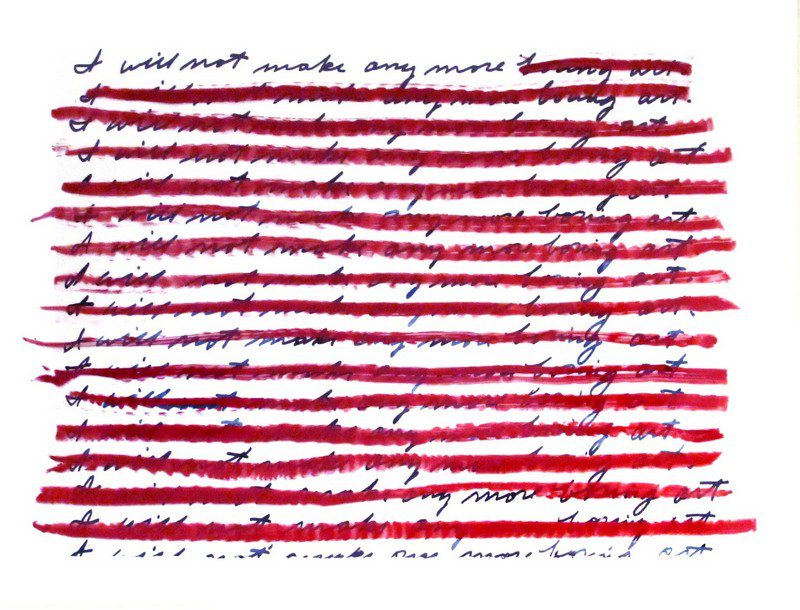 I will not make any more boring art
I will not make any more boring art.
I will not make any more boring art
I will not make any more boring art
I will not make any more boring art
I will not make any more boring art
I will not make any more boring art
I will not make any more boring art.
I will not make any more boring art.
I will not make any more boring art.
I will not make any more boring art
I will not make any more boring art
I will not make any more boring art.
I will not make any more boring art.
I will not make any more boring art
I will not make any boring art
I will not make any more boring art